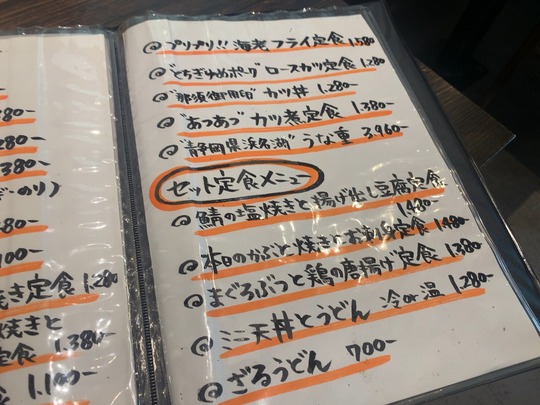 80-
280-
380-
ぎーのり)
00-
き定食 1.280
焼きと
定食 1.380-
食 1.100-
@プリプリ!! 海老フライ定食 1.580
@"とちぎゆめポーク" ロースカツ定食 1.280
@"那須御用卵" カツ丼 1.280-
@"あつあつ" カツ煮定食 1.380-
@"静岡県浜名湖" うな重 3.960-
セット定食メニュー
@鯖の塩焼きと揚げ出し豆腐定食
1.480-
@本日のかぶと焼きとお刺身定食 1.480-
@まぐろぶつと鶏の唐揚げ定食 1.380-
@ミニ天丼とうどん 冷or温 1.280-
@ざるうどん 700-